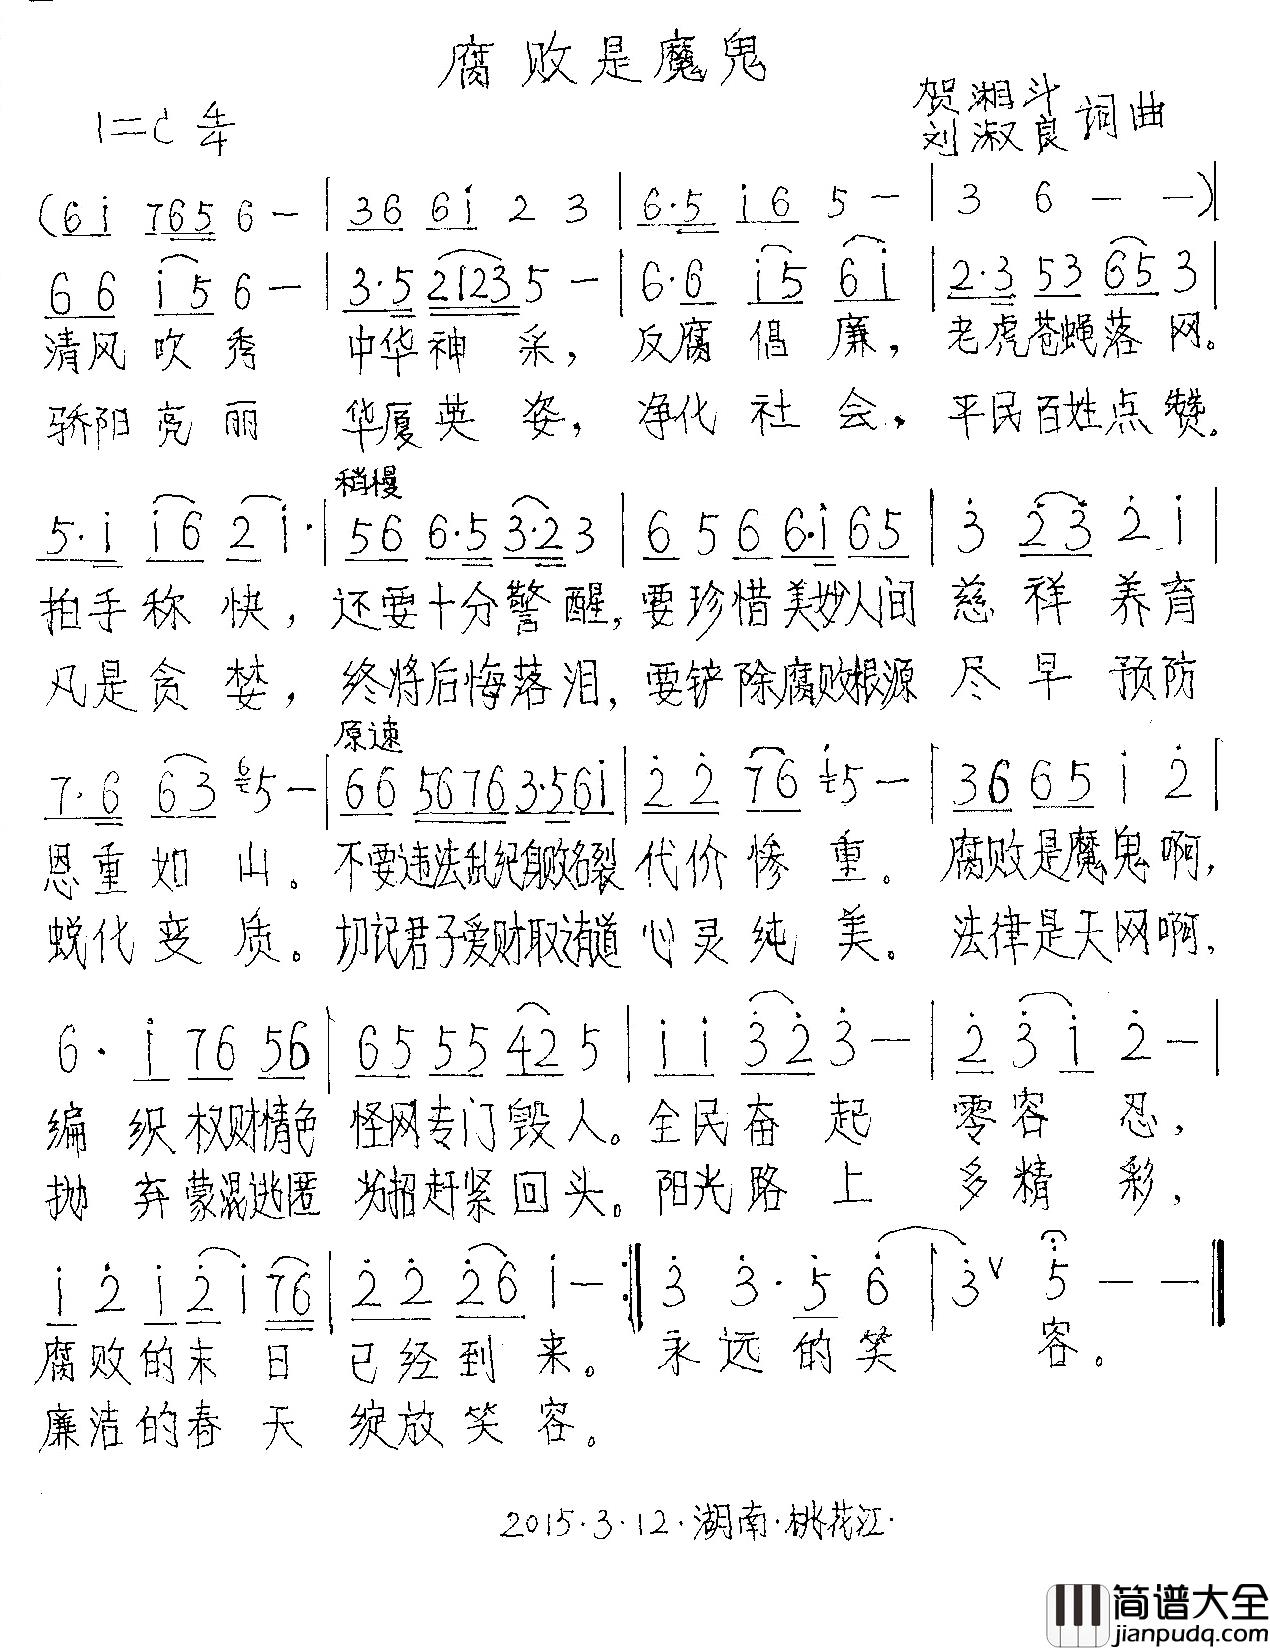 腐败是魔鬼
1=C 4/4
贺湘斗
刘淑良 词曲
(6i 765 6 — | 36 6i 2 3 | 6·5 i6 5 — | 3 6 — —) |
66 i5 6 — | 3·5 2123 5 — | 6·6 i5 6i | 2·3 53 653 |
清风吹秀 中华神采，反腐倡廉，老虎苍蝇落网。
骄阳亮丽 华厦英姿，净化社会，平民百姓点赞。
稍慢
5·i i6 2i· | 56 6·5 3·2 3 | 6 5 6 6·i 65 | 3 23 2 i |
拍手称快，还要十分警醒，要珍惜美妙人间 慈祥养育
凡是贪婪，终将后悔落泪，要铲除腐败根源 尽早预防
原速
7·6 63 5 — | 66 5676 3·56i | 2 2 76 5 — | 36 65 i 2 |
恩重如山。不要违法乱纪身败名裂 代价惨重。腐败是魔鬼啊，
蜕化变质。切记君子爱财取之有道 心灵纯美。法律是天网啊，
6· i 76 56 | 65 55 42 5 | i i 32 3 — | 2 3i 2 — |
编织权财情色 怪网专门毁人。全民奋起 零容忍，
抛弃蒙混逃匿 劣招赶紧回头。阳光路上 多精彩，
i 2 i 2 i 76 | 2 2 26 i — :| 3 3· 5 6 | 3 V 5 — — |
腐败的末日 已经到来。永远的笑 容。
廉洁的春天 绽放笑容。
2015·3·12·湖南·桃花江·
简谱大全
jianpudq.com